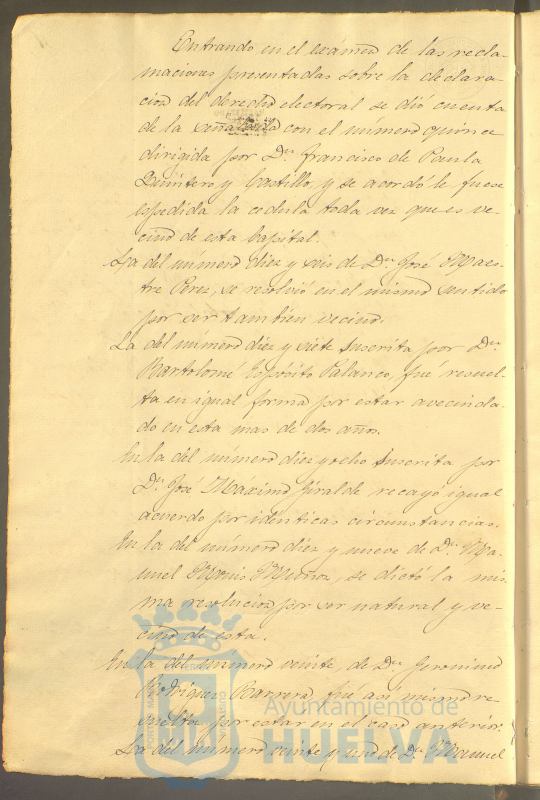 Entrando en el exámen de las recla-
maciones presentadas sobre la declara-
cion del derecho electoral se dió cuenta
de la señalada con el número quince
dirigida por Dn. Francisco de Paula
Quintero y Castillo, y se acordó le fuese
espedida la cedula toda vez que es ve-
cino de esta Capital.
La del número diez y seis de Dn. José Maes-
tre Perez, se resolvió en el mismo sentido
por ser tambien vecino.
La del número diez y siete suscrita por Dn.
Bartolomé Espósito Palanco, fué resuel-
ta en igual forma por estar avecinda-
do en esta mas de dos años.
En la del número diez y ocho suscrita por
Dn. José Maximo Giralde recayó igual
acuerdo por idénticas circunstancias.
En la del número diez y nueve de Dn. Ma-
nuel Muñoz, se dictó la mis-
ma resolucion por ser natural y ve-
cino de esta.
En la del número veinte de Dn. Geronimo
Rodriguez Barrera fué asi mismo re-
suelta por estar en el caso anterior.
La del número veinte y uno de Dn. Manuel
Ayuntamiento de
HUELVA